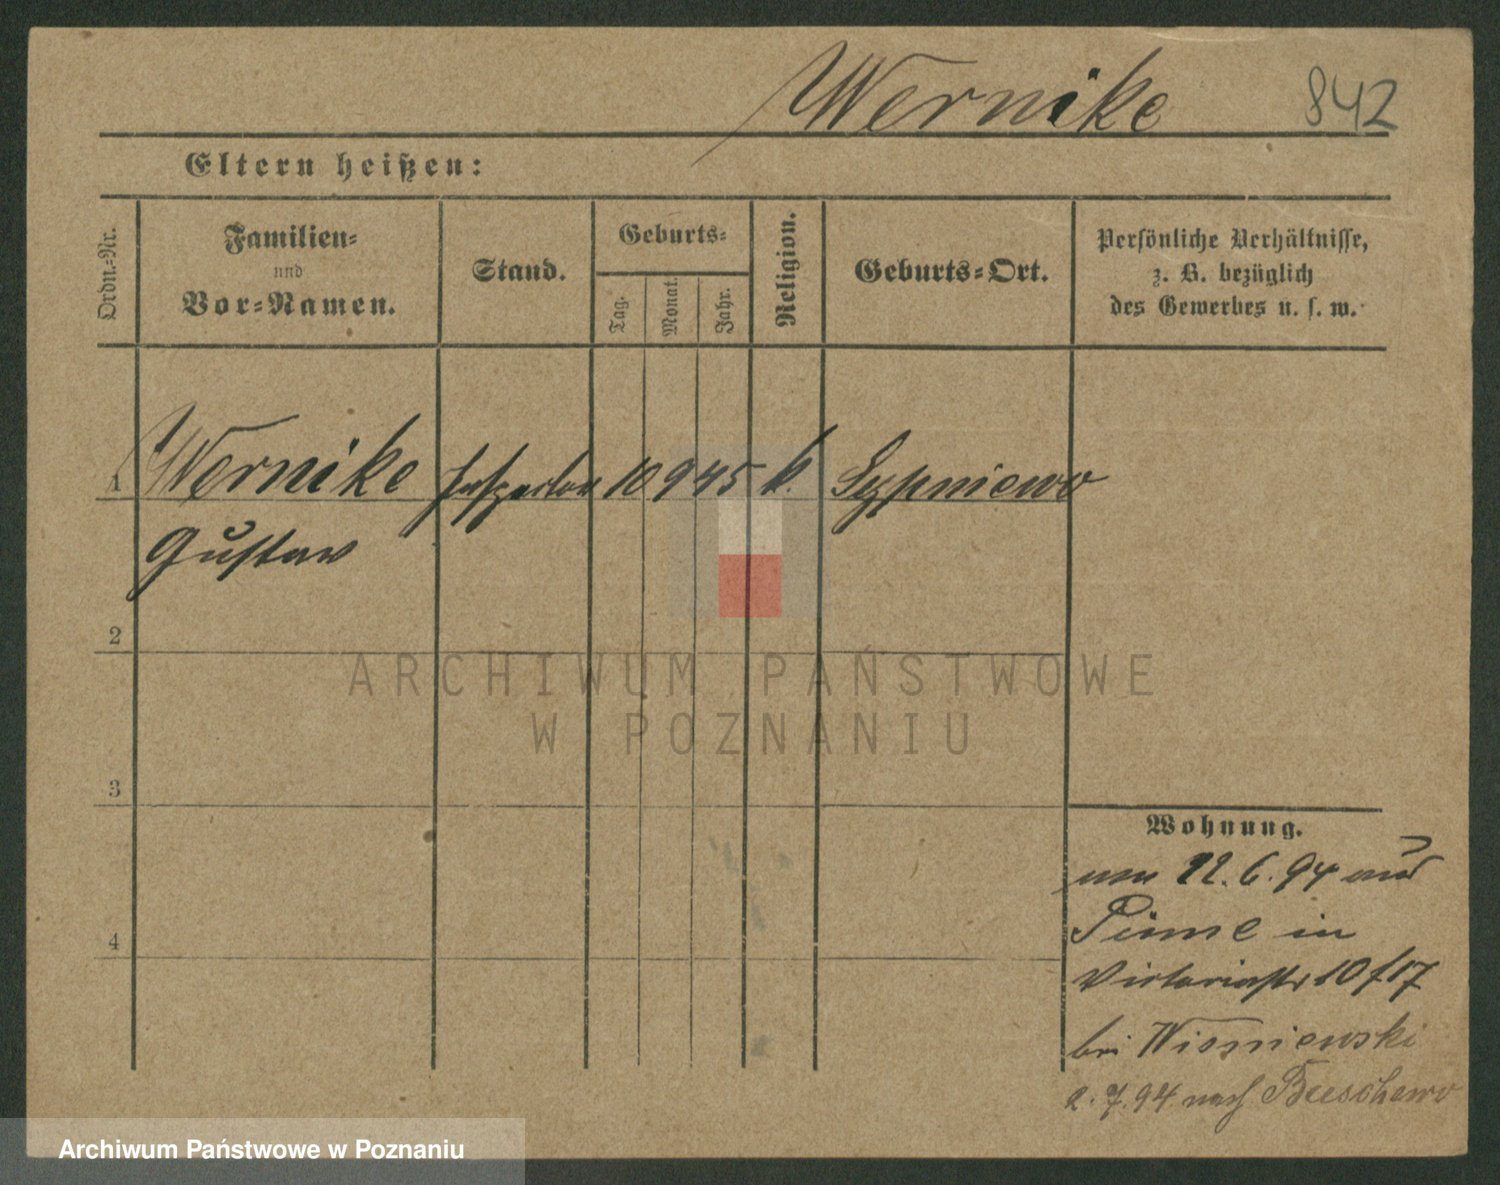 Wernike 842
Eltern heißen:
Ordn.-Nr.
Familien-
und
Vor-Namen.
Stand.
Geburts-
Tag.
Monat.
Jahr.
Religion.
Geburts-Ort.
Persönliche Verhältnisse,
z. B. bezüglich
des Gewerbes u. s. w.
1 Wernike Inspector 10 9 45 k. Sypniewo
Gustav
2
ARCHIWUM PAŃSTWOWE
W POZNANIU
3
Wohnung.
22.6.94 aus
Pinne in
4
Victoriastr 10 f 17
bei Wisniewski
2.7.94 nach
Archiwum Państwowe w Poznaniu